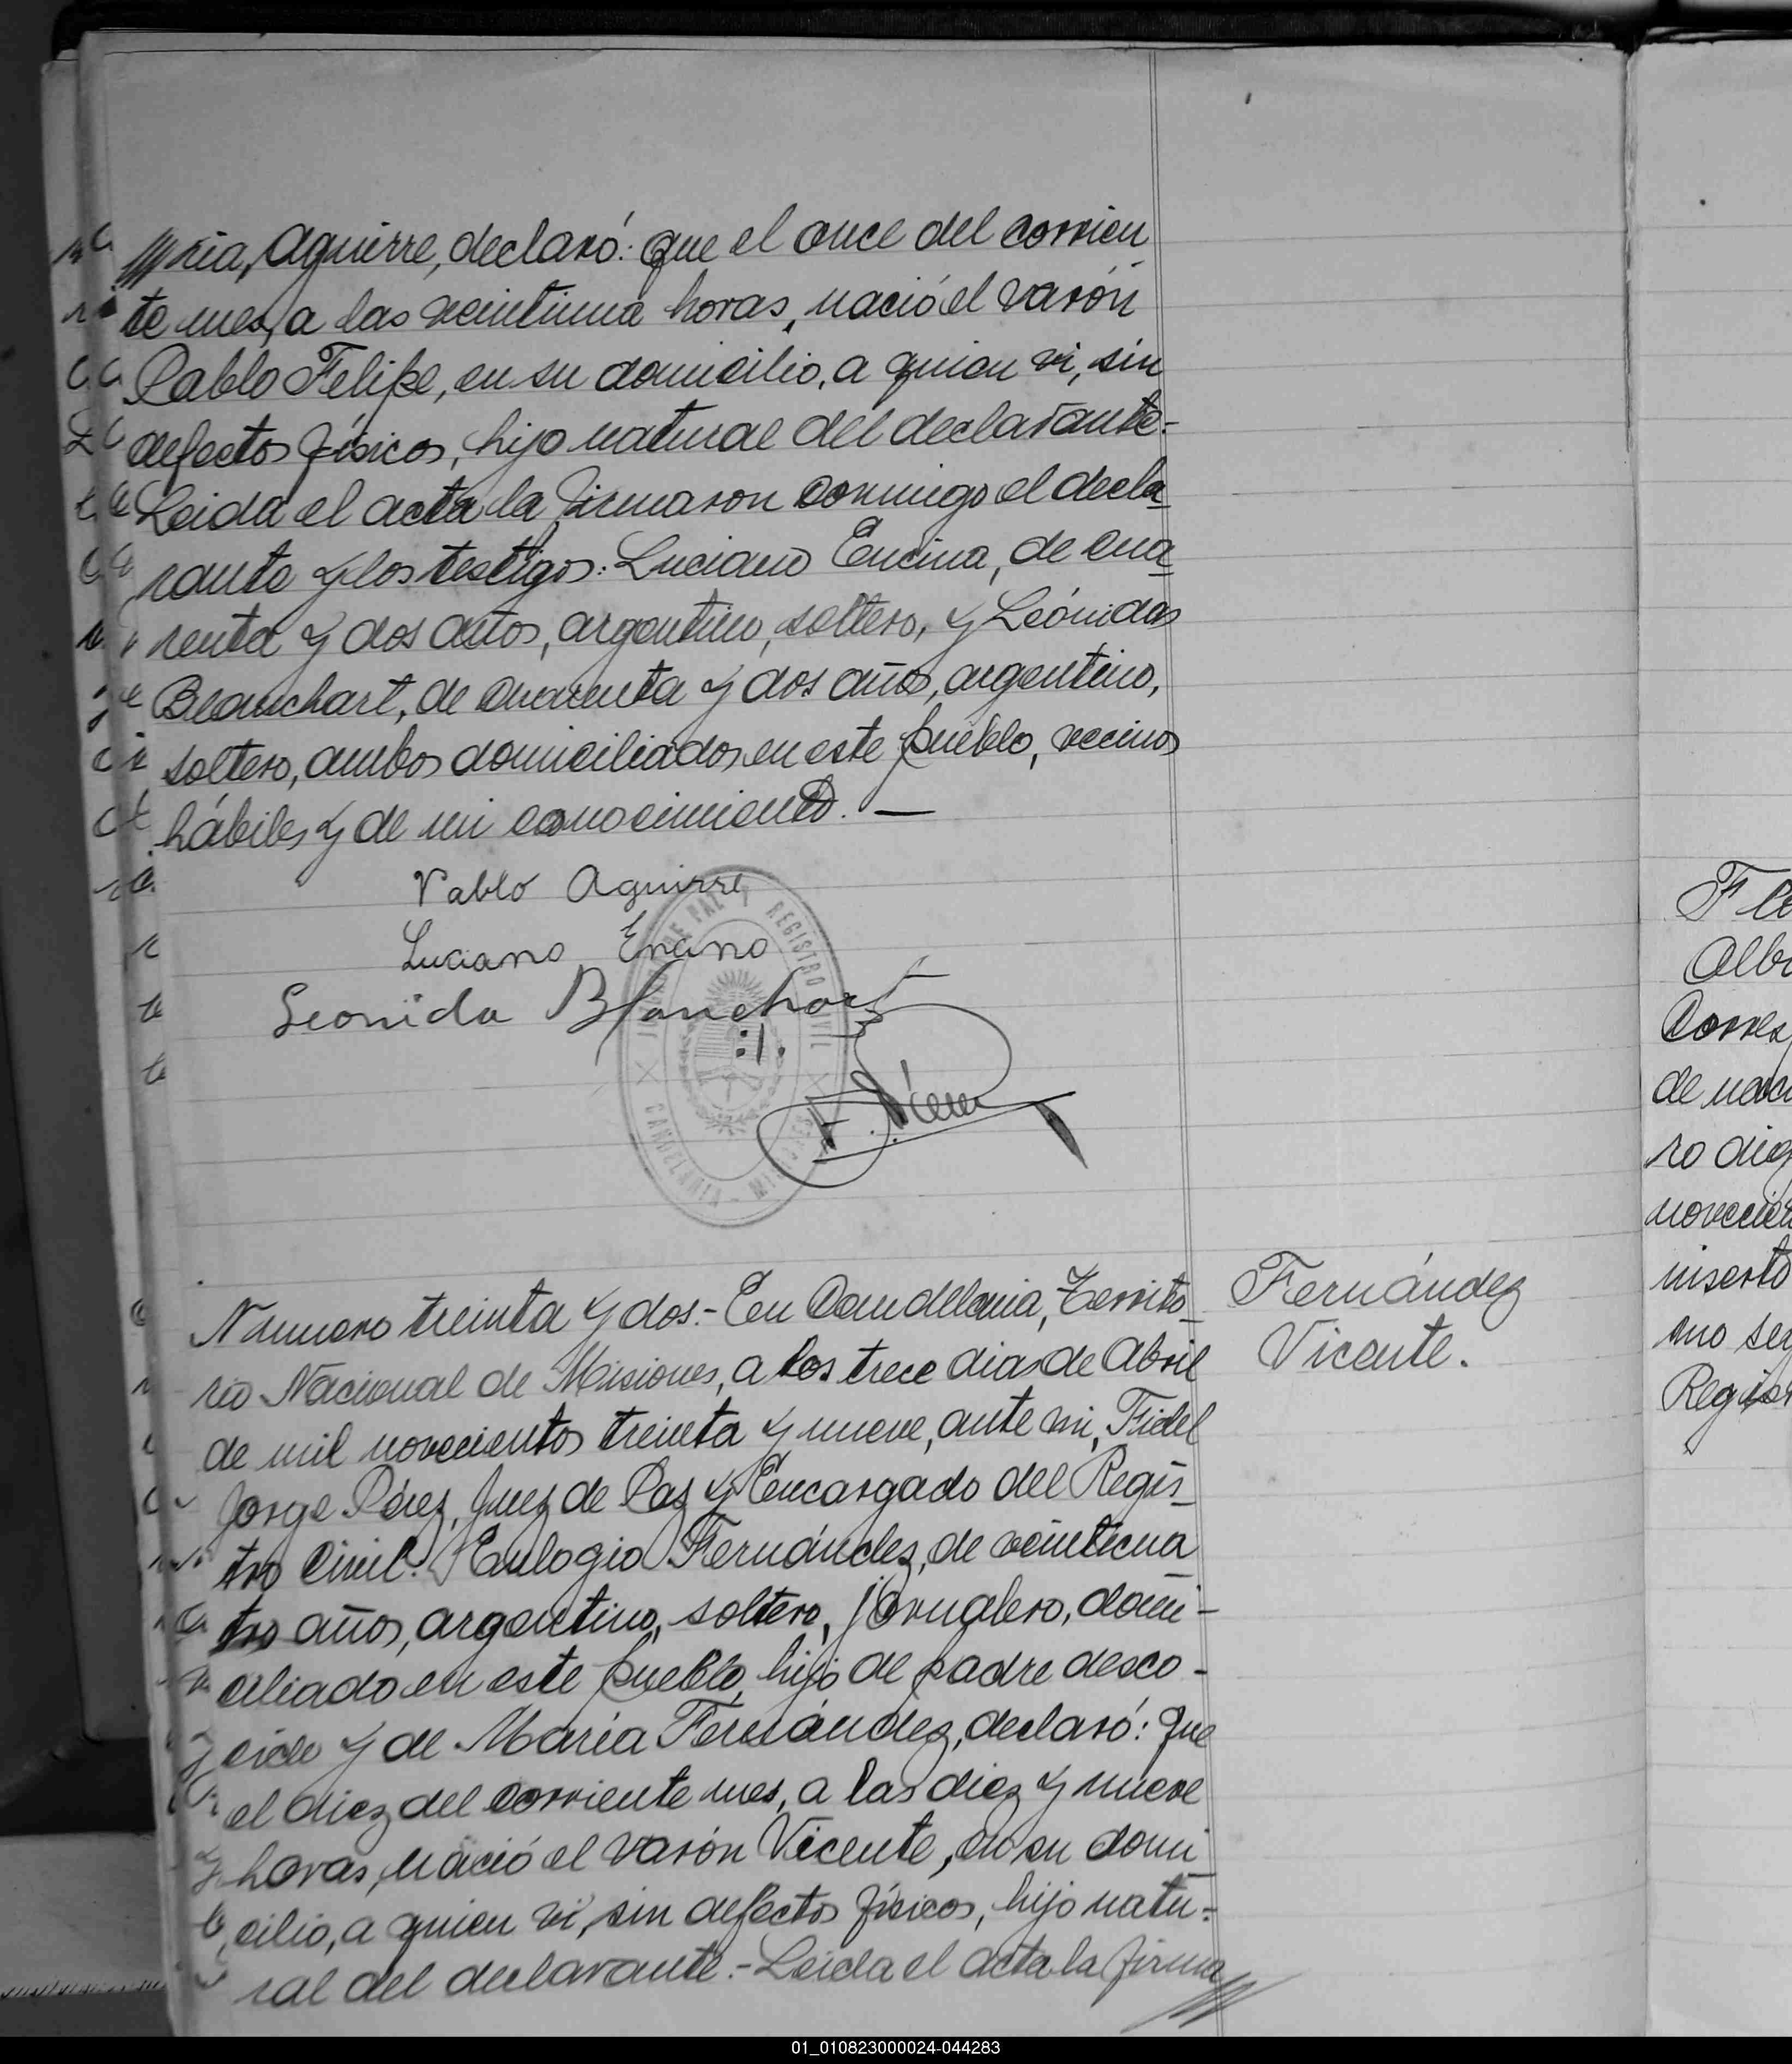 ///ria, Aguirre, declaró: que el once del corrien
te mes, a las veintiuna horas, nació el varón
Pablo Felipe, en su domicilio, a quien vi, sin
defectos físicos, hijo natural del declarante.-
Leida el acta la firmaron conmigo el decla
rante y los testigos: Luciano Encina, de cua
renta y dos años, argentino, soltero, y Leónidas
Blanchart, de cuarenta y dos años, argentino,
soltero, ambos domiciliados en este pueblo, vecinos
hábiles y de mi conocimiento. —
Pablo Aguirre
Luciano Encina
Leonida Blanchart
JUZGADO DE PAZ Y REGISTRO CIVIL
CANDELARIA - MISIONES
F. Pérez
Número treinta y dos.- En Candelaria, Territo
rio Nacional de Misiones, a los trece dias de Abril
de mil novecientos treinta y nueve, ante mi, Fidel
Jorge Pérez, Juez de Paz y Encargado del Regis
tro Civil: Eulogio Fernández, de veinticua
tro años, argentino, soltero, jornalero, domi-
ciliado en este pueblo, hijo de padre desco-
cido y de María Fernández, declaró: que
el diez del corriente mes, a las diez y nueve
horas, nació el varón Vicente, en su domi
cilio, a quien vi, sin defectos físicos, hijo natu-
ral del declarante.- Leida el acta la firma///
Fernández
Vicente.
Alb
Corres
de naci
ro die
novecien
inserto
mo se
Regis
01_010823000024-044283